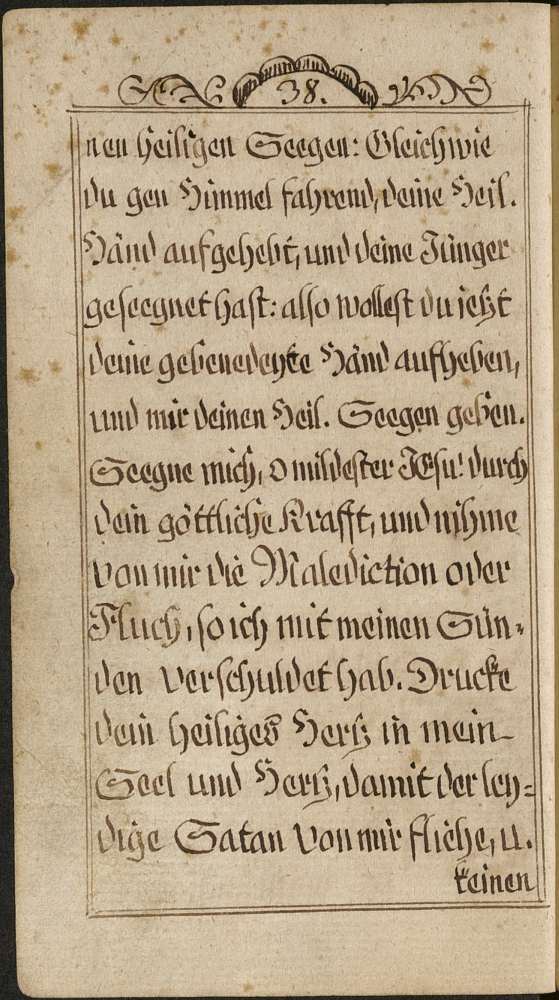 38.
nen heiligen Seegen: Gleichwie
du gen Himmel fahrend, deine Heil.
Händ aufgehebt, und deine Jünger
geseegnet hast: also wollest du jetzt
deine gebenedeyte Händ aufheben,
und mir deinen Heil. Seegen geben.
Seegne mich, O mildester JEsu! durch
dein göttliche Krafft, und nihme
von mir die Malediction oder
Fluch, so ich mit meinen Sün-
den verschuldet hab. Drucke
dein heiliges Hertz in mein
Seel und Hertz, damit der ley=
dige Satan von mir fliehe, u.
keinen